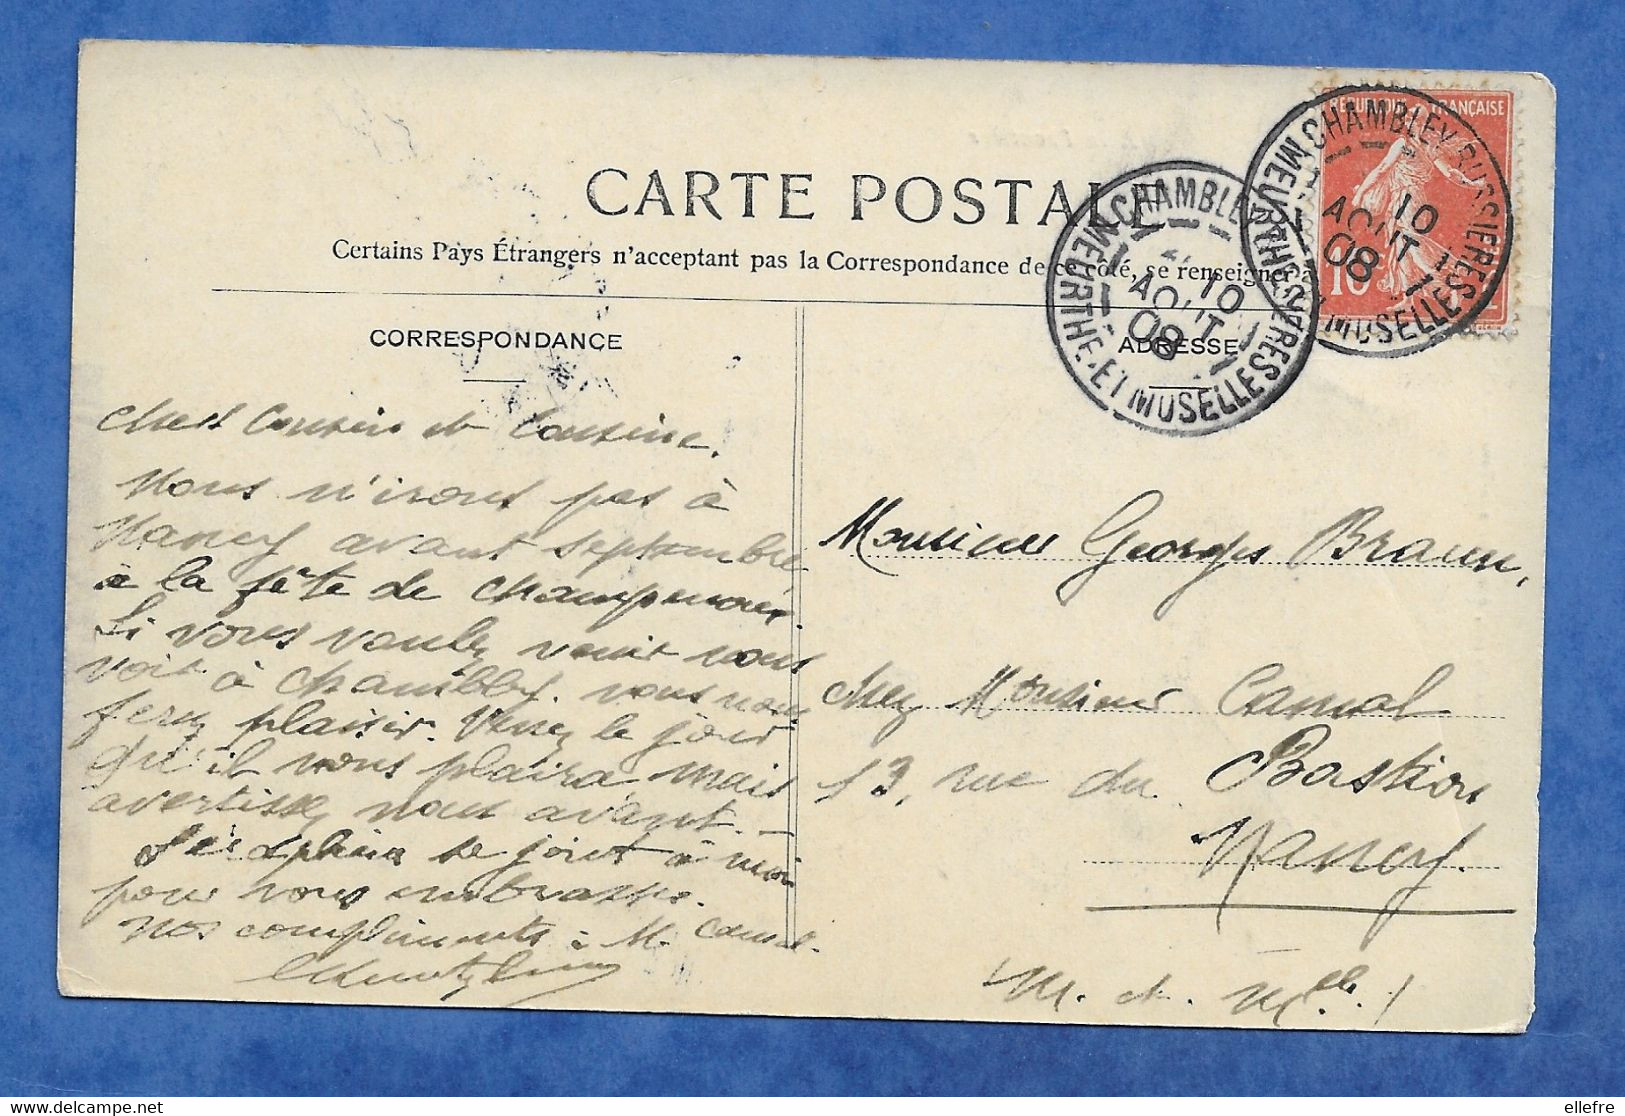 RÉPUBLIQUE FRANÇAISE
10
CHAMBLEY BUSSIÈRES
10
AOUT
08
MEURTHE-ET-MOSELLE
CHAMBLEY
10
AOUT
08
MEURTHE-ET-MOSELLE
CARTE POSTALE
Certains Pays Étrangers n'acceptant pas la Correspondance de ce côté, se renseigner à
CORRESPONDANCE
ADRESSE
Chers Cousin et Cousine.
Nous n'irons pas à
Nancy avant septembre
à la fête de Champenoux
Si vous voulez venir nous
voir à Chambley. vous nous
ferez plaisir. Venez le jour
qu'il vous plaira, mais
avertissez nous avant. -
se joint à moi
pour vous embrasser.
Nos compliments à M. Camal.
Monsieur Georges Braun,
chez Monsieur Camal
13, rue du Bastion
Nancy.
M. et M.
delcampe.net
ellefre